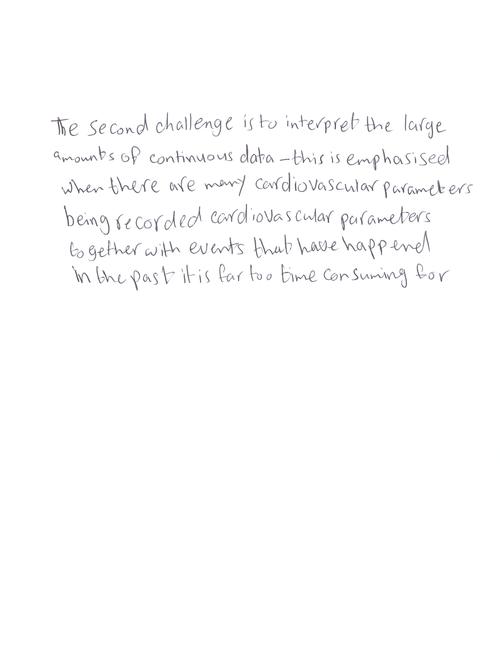 The second challenge is to interpret the large
amounts of continuous data – this is emphasised
when there are many cardiovascular parameters
being recorded cardiovascular parameters
together with events that have happend
in the past it is far too time consuming for